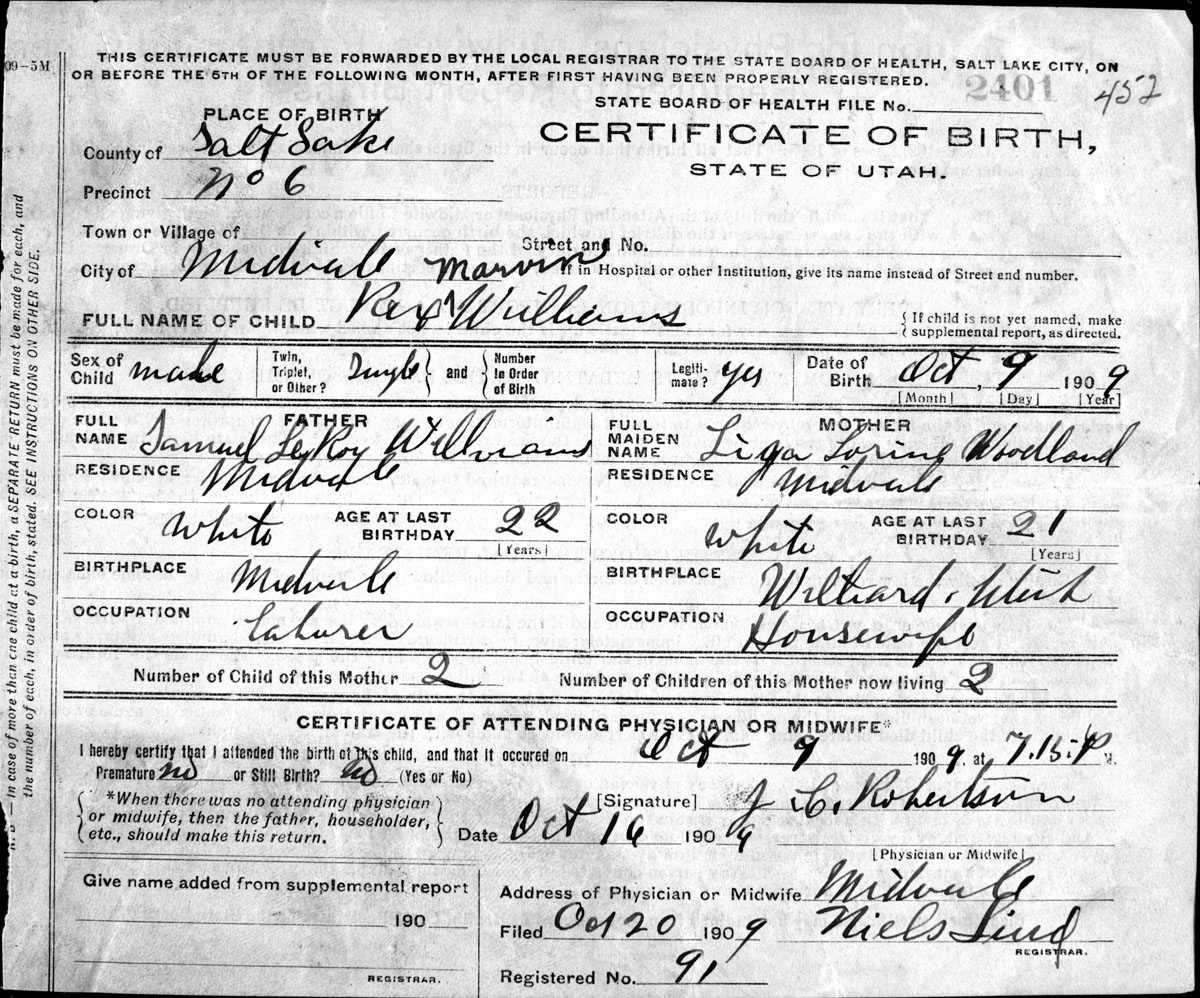 09-5M
THIS CERTIFICATE MUST BE FORWARDED BY THE LOCAL REGISTRAR TO THE STATE BOARD OF HEALTH, SALT LAKE CITY, ON
OR BEFORE THE 5TH OF THE FOLLOWING MONTH, AFTER FIRST HAVING BEEN PROPERLY REGISTERED.
2401 452
STATE BOARD OF HEALTH FILE No.
PLACE OF BIRTH
CERTIFICATE OF BIRTH,
STATE OF UTAH.
County of Salt Lake
Precinct No 6
Town or Village of
Street and No.
City of Midvale
If in Hospital or other Institution, give its name instead of Street and number.
Marvin
FULL NAME OF CHILD Rex ^ Williams
{ If child is not yet named, make
supplemental report, as directed.
Sex of Child male
Twin, Triplet, or Other? Single } and { Number in Order of Birth
Legitimate? yes
Date of Birth Oct, 9 1909
[Month] [Day] [Year]
FATHER
FULL NAME Samuel LeRoy Williams
RESIDENCE Midvale
COLOR White AGE AT LAST BIRTHDAY 22
[Years]
BIRTHPLACE Midvale
OCCUPATION Laborer
MOTHER
FULL MAIDEN NAME Woodland
RESIDENCE Midvale
COLOR White AGE AT LAST BIRTHDAY 21
[Years]
BIRTHPLACE Willard, Utah
OCCUPATION Housewife
Number of Child of this Mother 2 Number of Children of this Mother now living 2
CERTIFICATE OF ATTENDING PHYSICIAN OR MIDWIFE*
I hereby certify that I attended the birth of this child, and that it occured on Oct 9 1909. at 7.15. P M.
Premature no or Still Birth? no (Yes or No)
{ *When there was no attending physician
or midwife, then the father, householder,
etc., should make this return. }
[Signature] J C. Robertson
Date Oct 16 1909
[Physician or Midwife]
Give name added from supplemental report
190
REGISTRAR.
Address of Physician or Midwife Midvale
Filed Oct 20 1909 Niels Lind
REGISTRAR.
Registered No. 91
N.B.—In case of more than one child at a birth, a SEPARATE RETURN must be made for each, and
the number of each, in order of birth, stated. SEE INSTRUCTIONS ON OTHER SIDE.